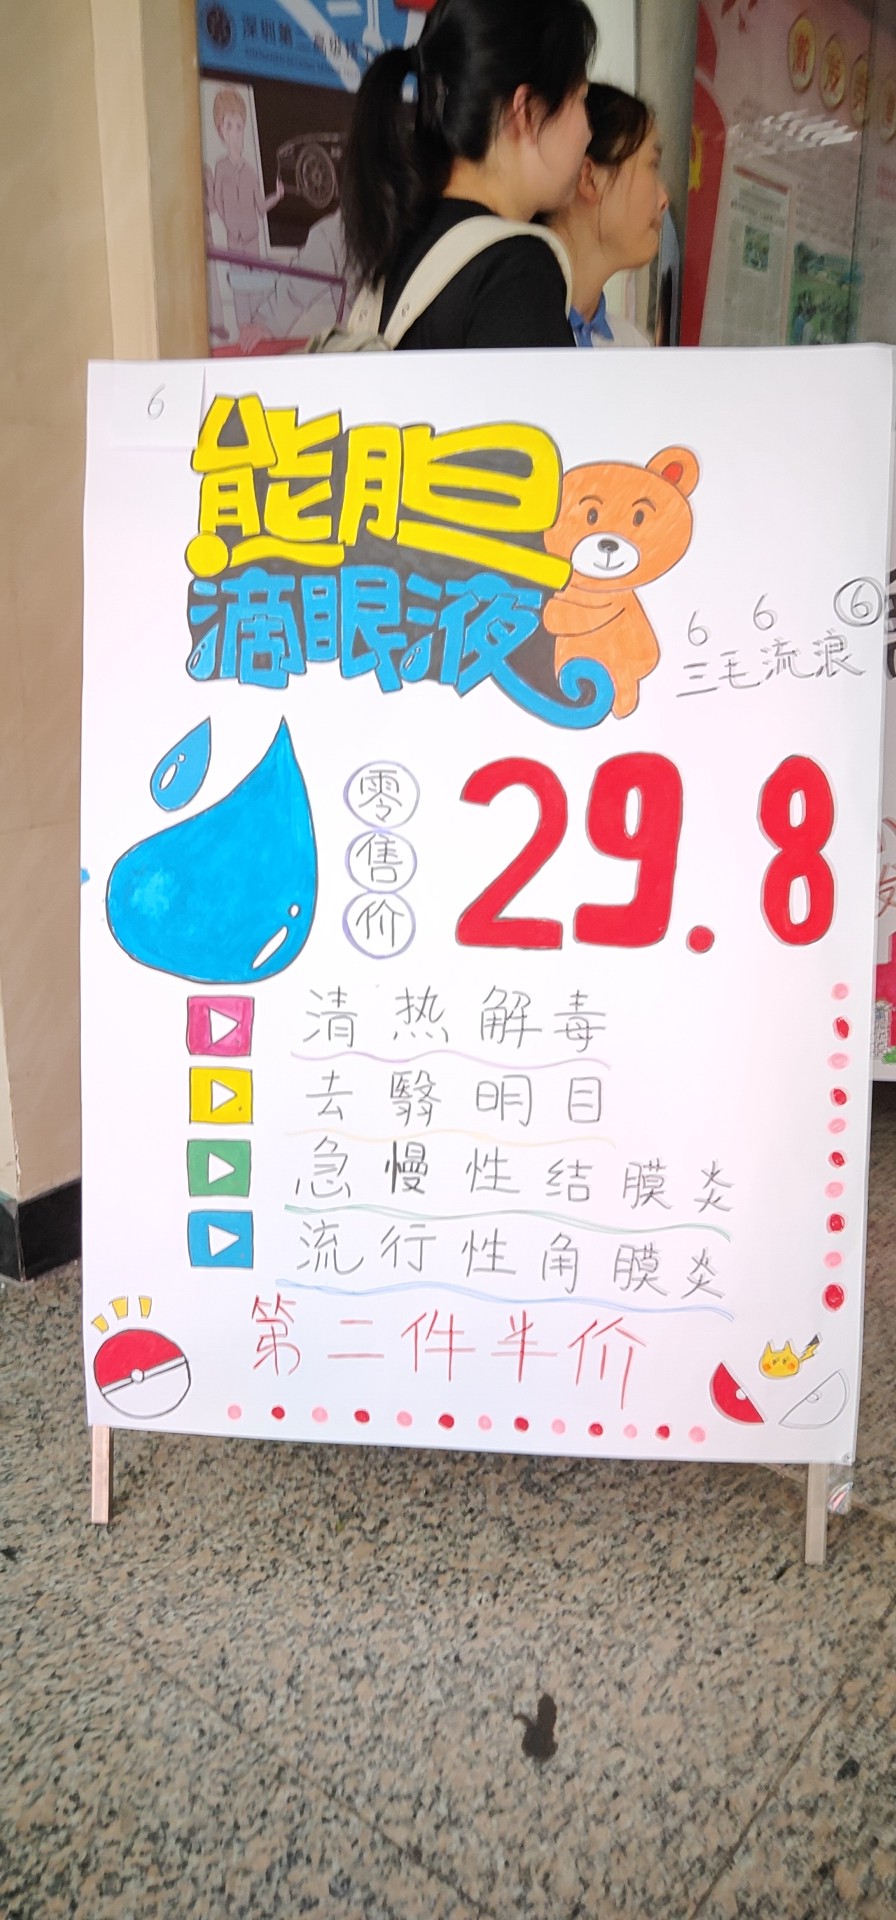 深圳第二高级技工
6
熊胆
滴眼液
6 6 6
三毛流浪
零售价
29.8
清热解毒
去翳明目
急慢性结膜炎
流行性角膜炎
第二件半价